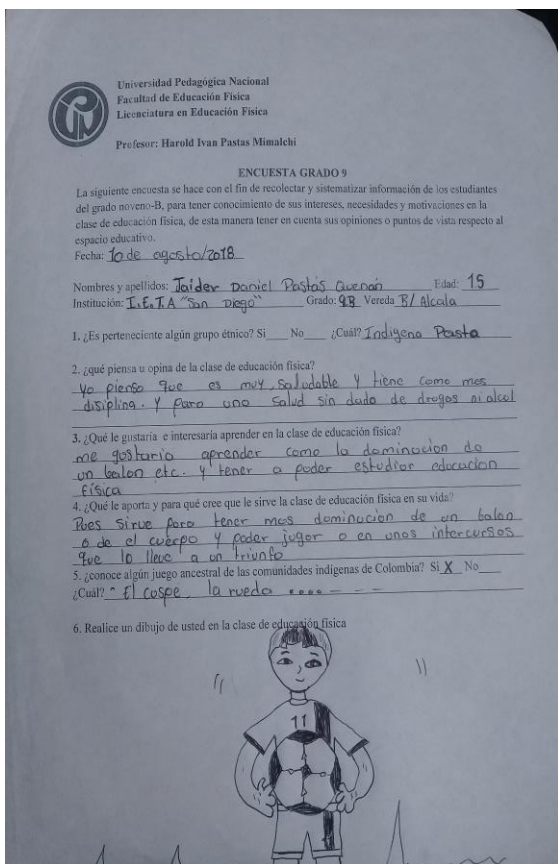 Universidad Pedagógica Nacional
Facultad de Educación Física
Licenciatura en Educación Física
Profesor: Harold Ivan Pastas Mimalchi
ENCUESTA GRADO 9
La siguiente encuesta se hace con el fin de recolectar y sistematizar información de los estudiantes
del grado noveno-B, para tener conocimiento de sus intereses, necesidades y motivaciones en la
clase de educación física, de esta manera tener en cuenta sus opiniones o puntos de vista respecto al
espacio educativo.
Fecha: 10 de agosto/2018
Nombres y apellidos: Jaider Daniel Pastás Quenán Edad: 15
Institución: I.E.T.A "San Diego" Grado: 9B Vereda B/ Alcala
1. ¿Es perteneciente algún grupo étnico? Si___ No___ ¿Cuál? Indigena Pasto
2. ¿qué piensa u opina de la clase de educación física?
yo pienso que es muy saludable y tiene como mas
disiplina. y para una salud sin dado de drogas ni alcol
3. ¿Qué le gustaría e interesaría aprender en la clase de educación física?
me gustaria aprender como la dominacion de
un balon etc. y tener a poder estudiar educacion
física
4. ¿Qué le aporta y para qué cree que le sirve la clase de educación física en su vida?
Pues sirve para tener mas dominacion de un balon
o de el cuerpo y poder jugar o en unos intercursos
que lo lleve a un triunfo
5. ¿conoce algún juego ancestral de las comunidades indígenas de Colombia? Si X No___
¿Cuál? El cuspe, la rueda
6. Realice un dibujo de usted en la clase de educación física
11